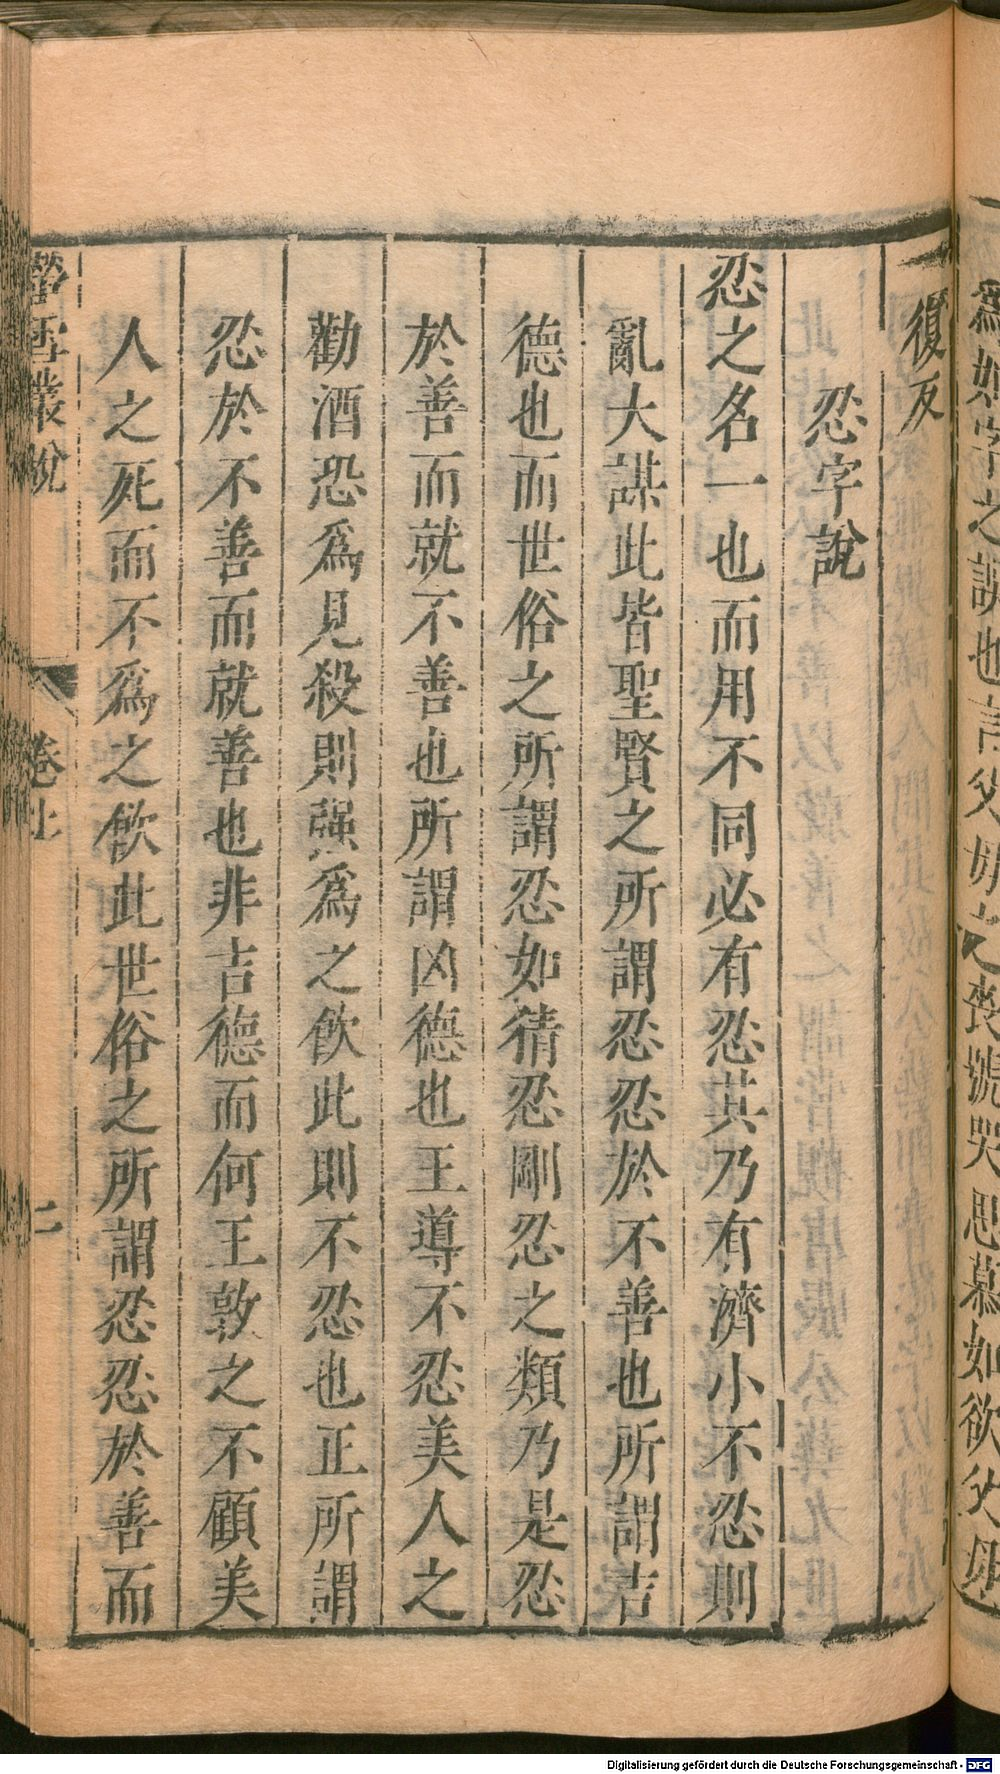 爲如字之誤也言父母之喪號哭思慕如欲父母
復反
忍字說
忍之名一也而用不同必有忍其乃有濟小不忍則
亂大謀此皆聖賢之所謂忍忍於不善也所謂吉
德也而世俗之所謂忍如猜忍剛忍之類乃是忍
於善而就不善也所謂凶德也王導不忍美人之
勸酒恐爲見殺則强爲之飲此則不忍也正所謂
忍於不善而就善也非吉德而何王敦之不顧美
人之死而不爲之飲此世俗之所謂忍忍於善而
螢雪叢說 卷上 二
Digitalisierung gefördert durch die Deutsche Forschungsgemeinschaft - DFG